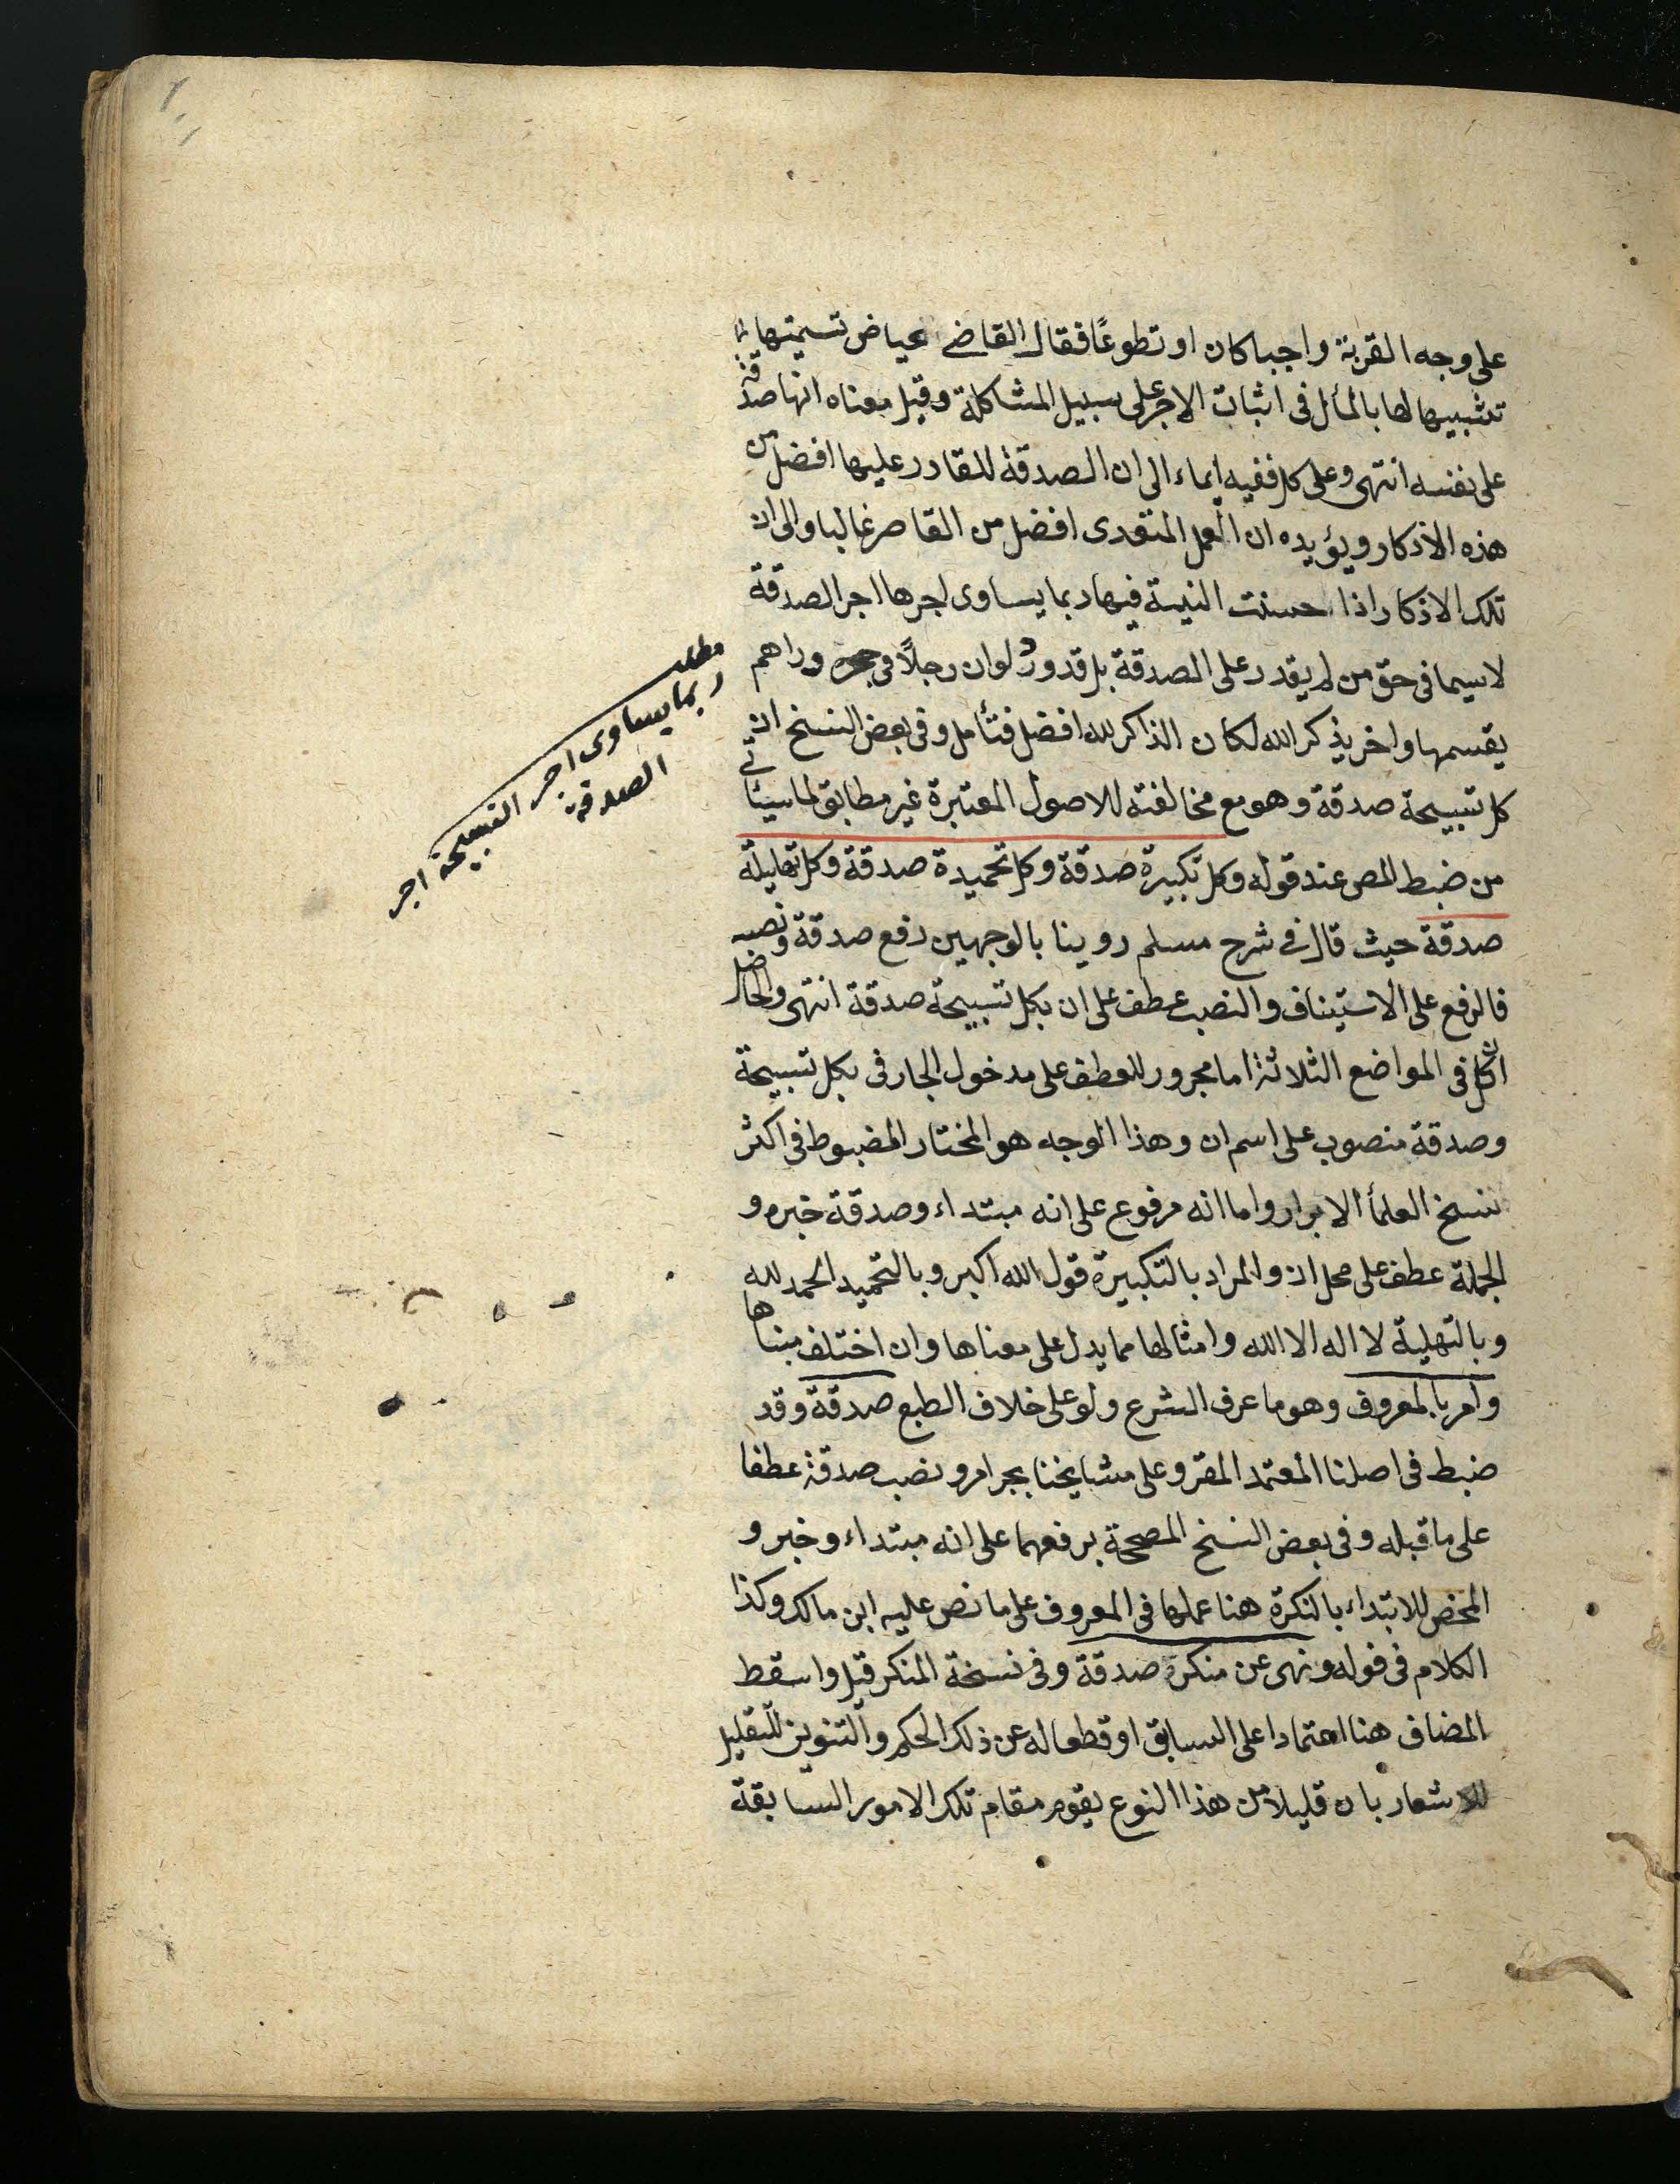 على وجه القربة واجبا كان او تطوعًا فقال القاضى عياض تسميتها لها
تشبيها لها بالمال فى اثبات الاجر على سبيل المشاكلة وقيل معناه انها صدقة
على نفسه انتهى وعلى كل ففيه ايماء الى ان الصدقة للقادر عليها افضل من
هذه الاذكار ويؤيده ان العمل المتعدى افضل من القاصر غالبا والى ان
تلك الاذكار اذا حسنت النية فيها ربما يساوى اجرها اجر الصدقة
لاسيما فى حق من لم يقدر على الصدقة بل قد ورد لو ان رجلاً فى حجره دراهم
يقسمها واخر يذكر الله لكان الذاكر لله افضل فتأمل وفى بعض النسخ ان
كل تسبيحة صدقة وهو مع مخالفته للاصول المعتبرة غير مطابق لما سيأتى
من ضبط المص عند قوله وكل تكبيرة صدقة وكل تحميدة صدقة وكل تهليلة
صدقة حيث قال فى شرح مسلم روينا بالوجهين رفع صدقة ونصبه
فالرفع على الاستيناف والنصب عطف على ان بكل تسبيحة صدقة انتهى والحاصل
ان كل فى المواضع الثلاثة اما مجرور للعطف على مدخول الجار فى بكل تسبيحة
وصدقة منصوب على اسم ان وهذا الوجه هو المختار المضبوط فى اكثر
نسخ العلمأ الابرار واما انه مرفوع على انه مبتداء وصدقة خبره و
الجملة عطف على محل ان والمراد بالتكبيرة قول الله اكبر وبالتحميد الحمد لله
وبالتهليلة لا اله الا الله وامثالها مما يدل على معناها وان اختلف مبناها
وامر بالمعروف وهو ما عرف الشرع ولو على خلاف الطبع صدقة وقد
ضبط فى اصلنا المعتمد المقرو على مشايخنا بجر امر ونصب صدقة عطفا
على ما قبله وفى بعض النسخ المصححة برفعهما على انه مبتداء وخبر و
المخصص للابتداء بالنكرة هنا عملها فى المعروف على ما نص عليه ابن مالك وكذا
الكلام فى قوله ونهى عن منكر صدقة وفى نسخة المنكر قيل واسقط
المضاف هنا اعتمادا على السابق او قطعا له عن ذلك الحكم والتنوين للتقليل
للاشعار بان قليلا من هذا النوع يقوم مقام تلك الامور السابقة
مطلب
ربما يساوى اجر التسبيحة اجر
الصدقة